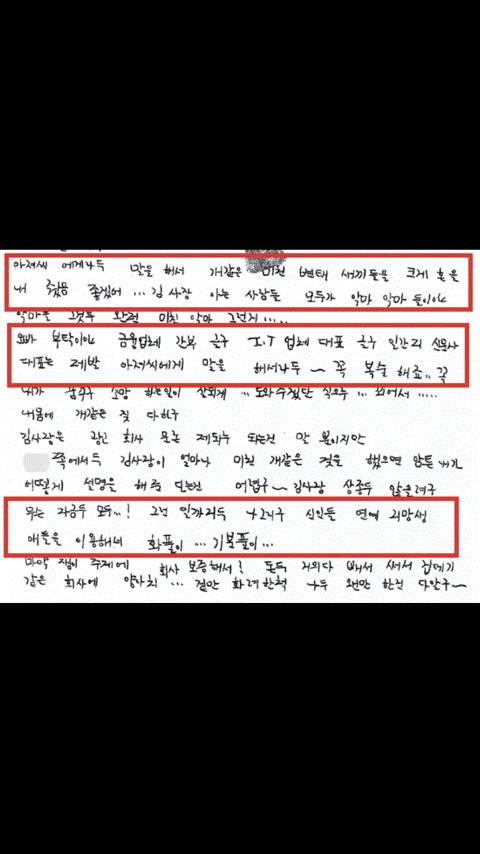 아저씨 에게나두 말을 해서 개같은 미친 변태 새끼들을 크게 혼을
내 줬음 좋겠어 ... 김 사장 아는 사람들 모두가 악마 악마 들이야
악마들 그것두 완전 미친 악마
오빠 부탁이야 금융업체 간부 글구 I.T 업체 대표 글구 인간 신문사
대표는 제발 아저씨에게 말을 해서나두 ~ 꼭 복수 해죠.. 꼭
내가 소망 하는일이 잘되게 ...
내몸에 개같은 짓 다하구
김사장은 회사 만 봐지만
쪽에서두 김사장이 얼마나 미친 개같은 것을 했으면 암튼 내가
어떻게 설명을 해 어렵구 ~ 김사장
무슨 자금두 모두...! 그런 일까지두 신인들 연예 지망생
애들을 이용해서 화풀이 ... 기분풀이 ...
마약 쟁이 주제에 회사 보증해서! 돈두 거의다 뺏어 써서 껍데기
같은 회사에 양아치 ... 겉만 화려한척 나두 왠만 한건 다안구 ~